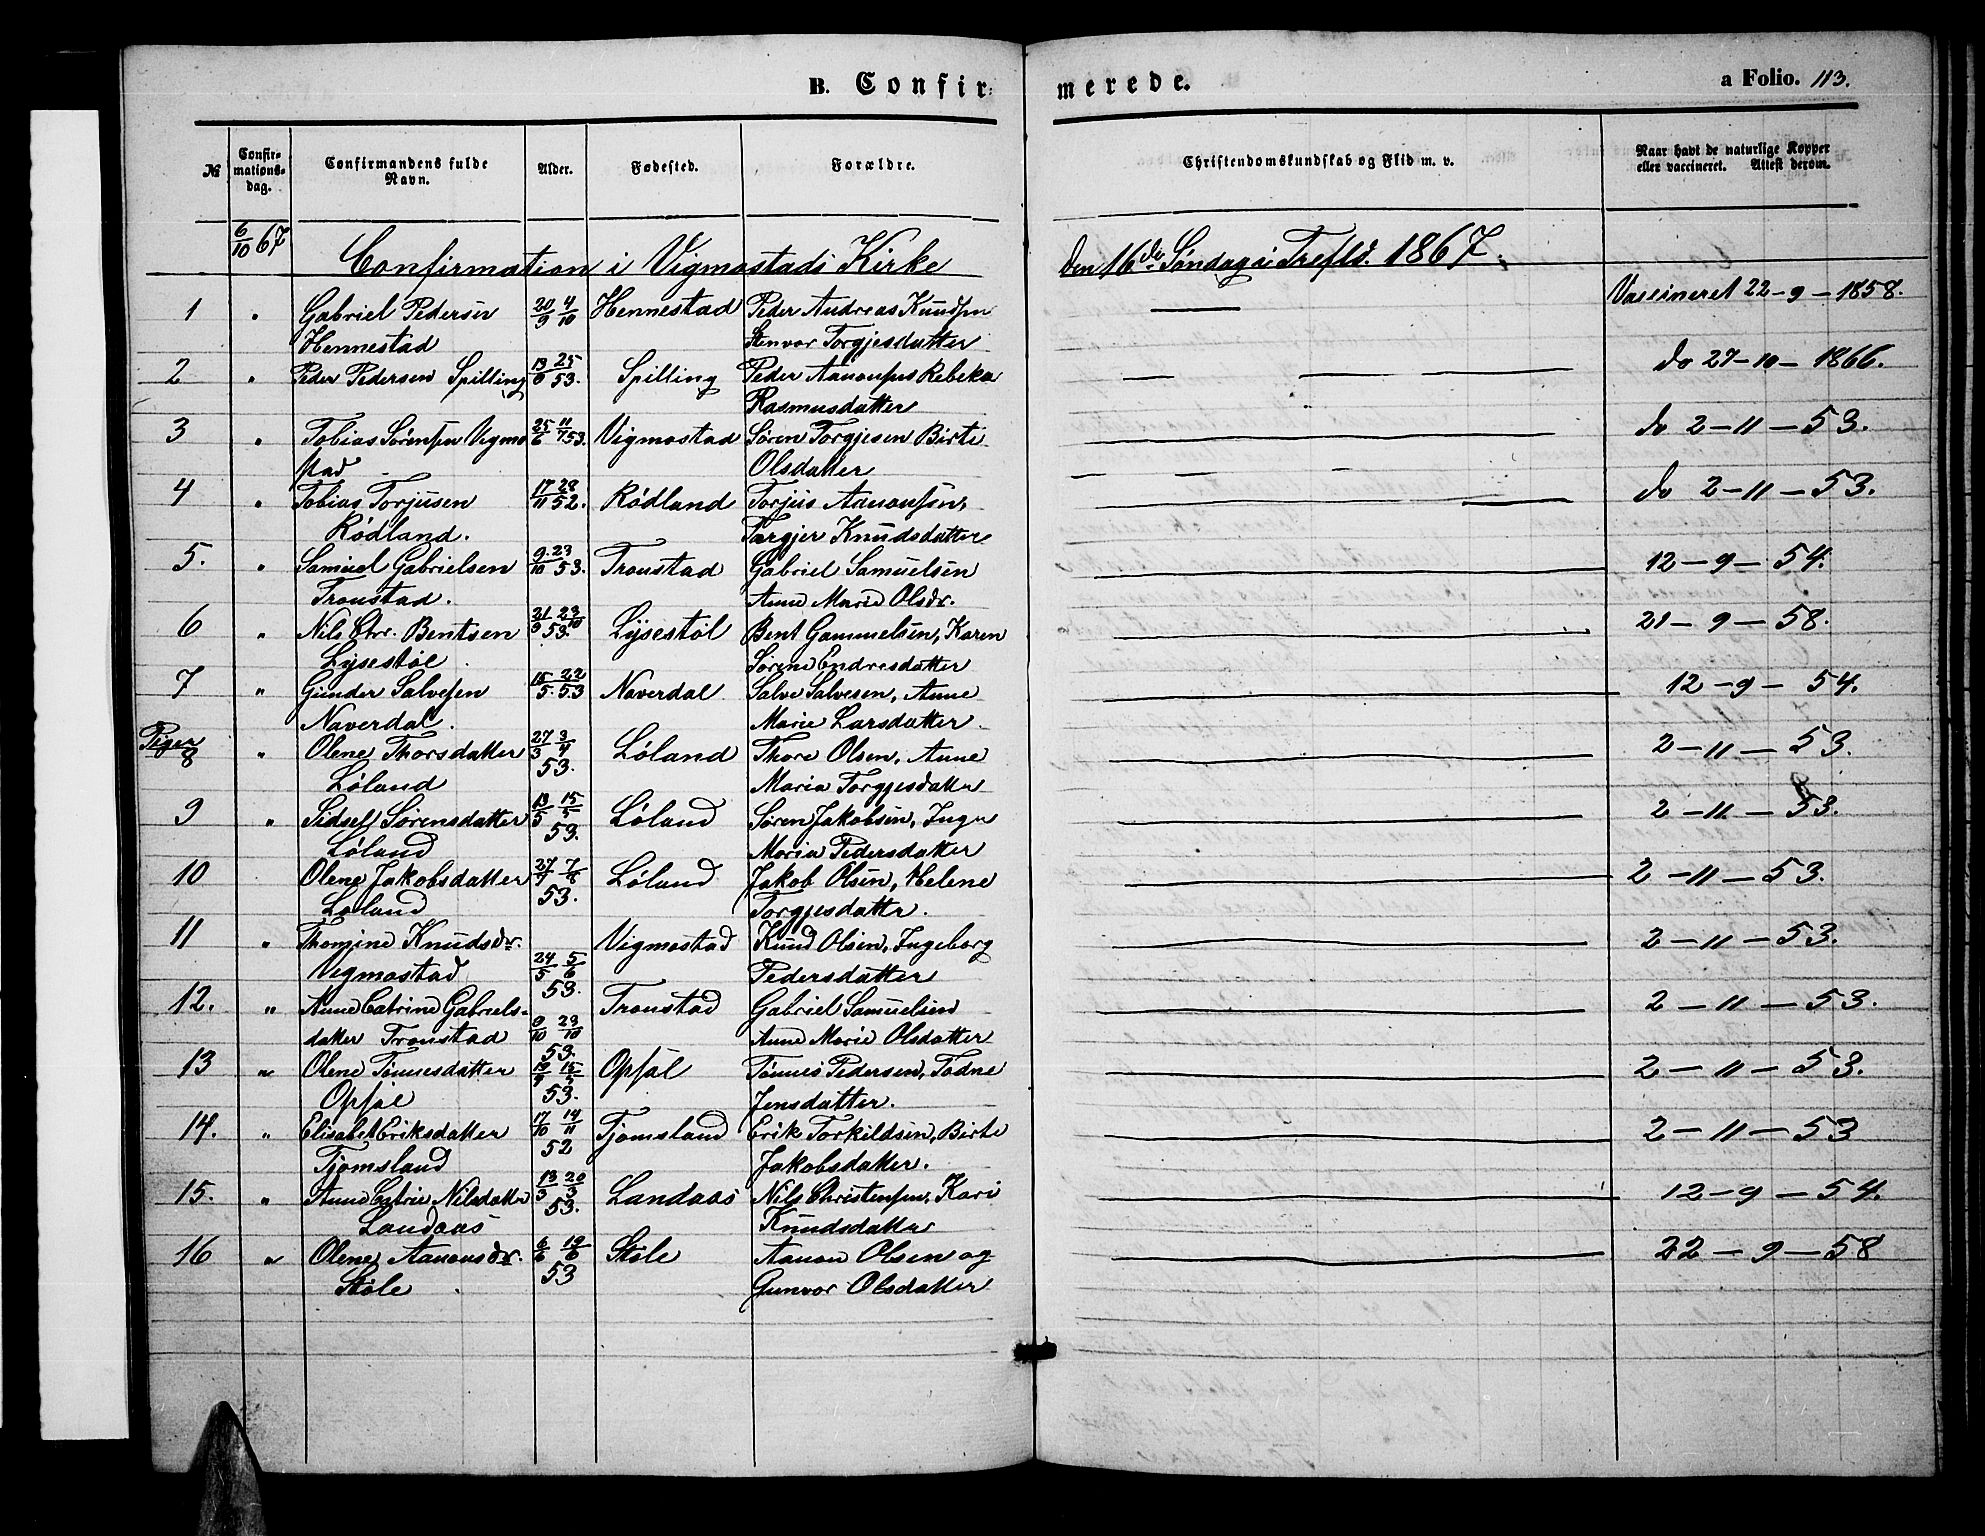 B. Confirmerede. a Folio. 113.
№ Confirmationsdag. Confirmandens fulde Navn. Alder. Fødested. Forældre. Christendomskundskab og Flid m. v. Naar havt de naturlige Kopper eller vaccineret. Attest derom.
6/10 67 Confirmation i Vigmostads Kirke den 16de Søndag i Trefld. 1867.
1 " Gabriel Pedersen 20/9 4/10 Hennestad Peder Andreas Knudsen Vaccineret 22-9-1858.
Hennestad Stenvor Torgjesdatter
2 " Peder Pedersen Spilling 25 53. Spilling Peder Aanonsen Rebeka do 27-10-1866.
Rasmusdatter
3 " Tobias Sørensen Vigmo 25/6 11/7 53. Vigmostad Søren Torgjesen Birte do 2-11-53.
stad Olsdatter
4 " Tobias Torjusen 17/11 28 52. Rødland Torjus Aanonsen, do 2-11-53.
Rødland. Torgjer Knudsdatter
5. " Samuel Gabrielsen 9/10 23 53. Tronstad Gabriel Samuelsen 12-9-54.
Tronstad. Anne Marie Olsdr.
6 " Nils Chr. Bentsen 53. Lysestøl Bent Gammelsen, Karen 21-9-58.
Lysestøl Sørene Endresdatter
7 " Gunder Salvesen 15/5. 22 53 Naverdal Salve Salvesen, Anne 12-9-54.
Naverdal. Marie Larsdatter
Piger
8 " Olene Thorsdatter 27/3 3/4 53. Løland Thore Olsen, Anne 2-11-53.
Løland Maria Torgjesdatter
9 " Sidsel Sørensdatter 13/5 15/5 53. Løland Søren Jakobsen, Inger 2-11-53.
Løland Maria Pedersdatter
10 Olene Jakobsdatter 27/7 7/8 53. Løland Jakob Olsen, Helene 2-11-53.
Løland Torgjesdattr.
11 " Thomine Knudsdr. 24/5 5/6 53. Vigmostad Knud Olsen, Ingeborg 2-11-53.
Vegmostad Pedersdatter
12. " Anne Catrine Gabriels- 9/10 23/10 53. Tronstad Gabriel Samuelsen 2-11-53.
datter Tronstad Anne Marie Olsdatter
13 " Olene Tønnesdatter 53. Opsal Tønnes Pedersen, Todne 2-11-53.
Opsal Jensdatter.
14. " Elisabet Eriksdatter 17/10 14/11 52 Tjomsland Erik Torkildsen, Birte 2-11-53
Tjomsland Jakobsdatter.
15. " Anne Catrie Nilsdatter 13/3 20/3 53. Landaas Nils Christensen, Kari 12-9-54.
Landaas Knudsdatter
16 " Olene Aanonsdr. 6/6 19/6 53 Støle Aanon Olsen og 22-9-58
Støle Gunvor Olsdatter